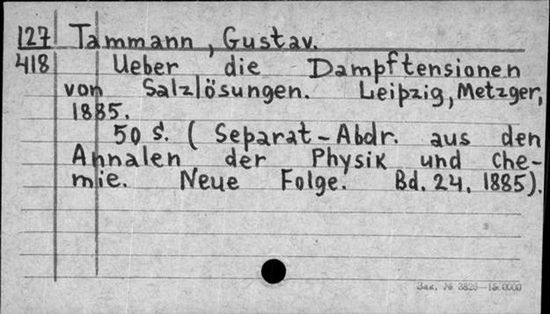 127 Tammann, Gustav.
418 Ueber die Dampftensionen
von Salzlösungen. Leipzig, Metzger,
1885.
50 S. (Separat-Abdr. aus den
Annalen der Physik und Che-
mie. Neue Folge. Bd. 24. 1885).
Зак. №